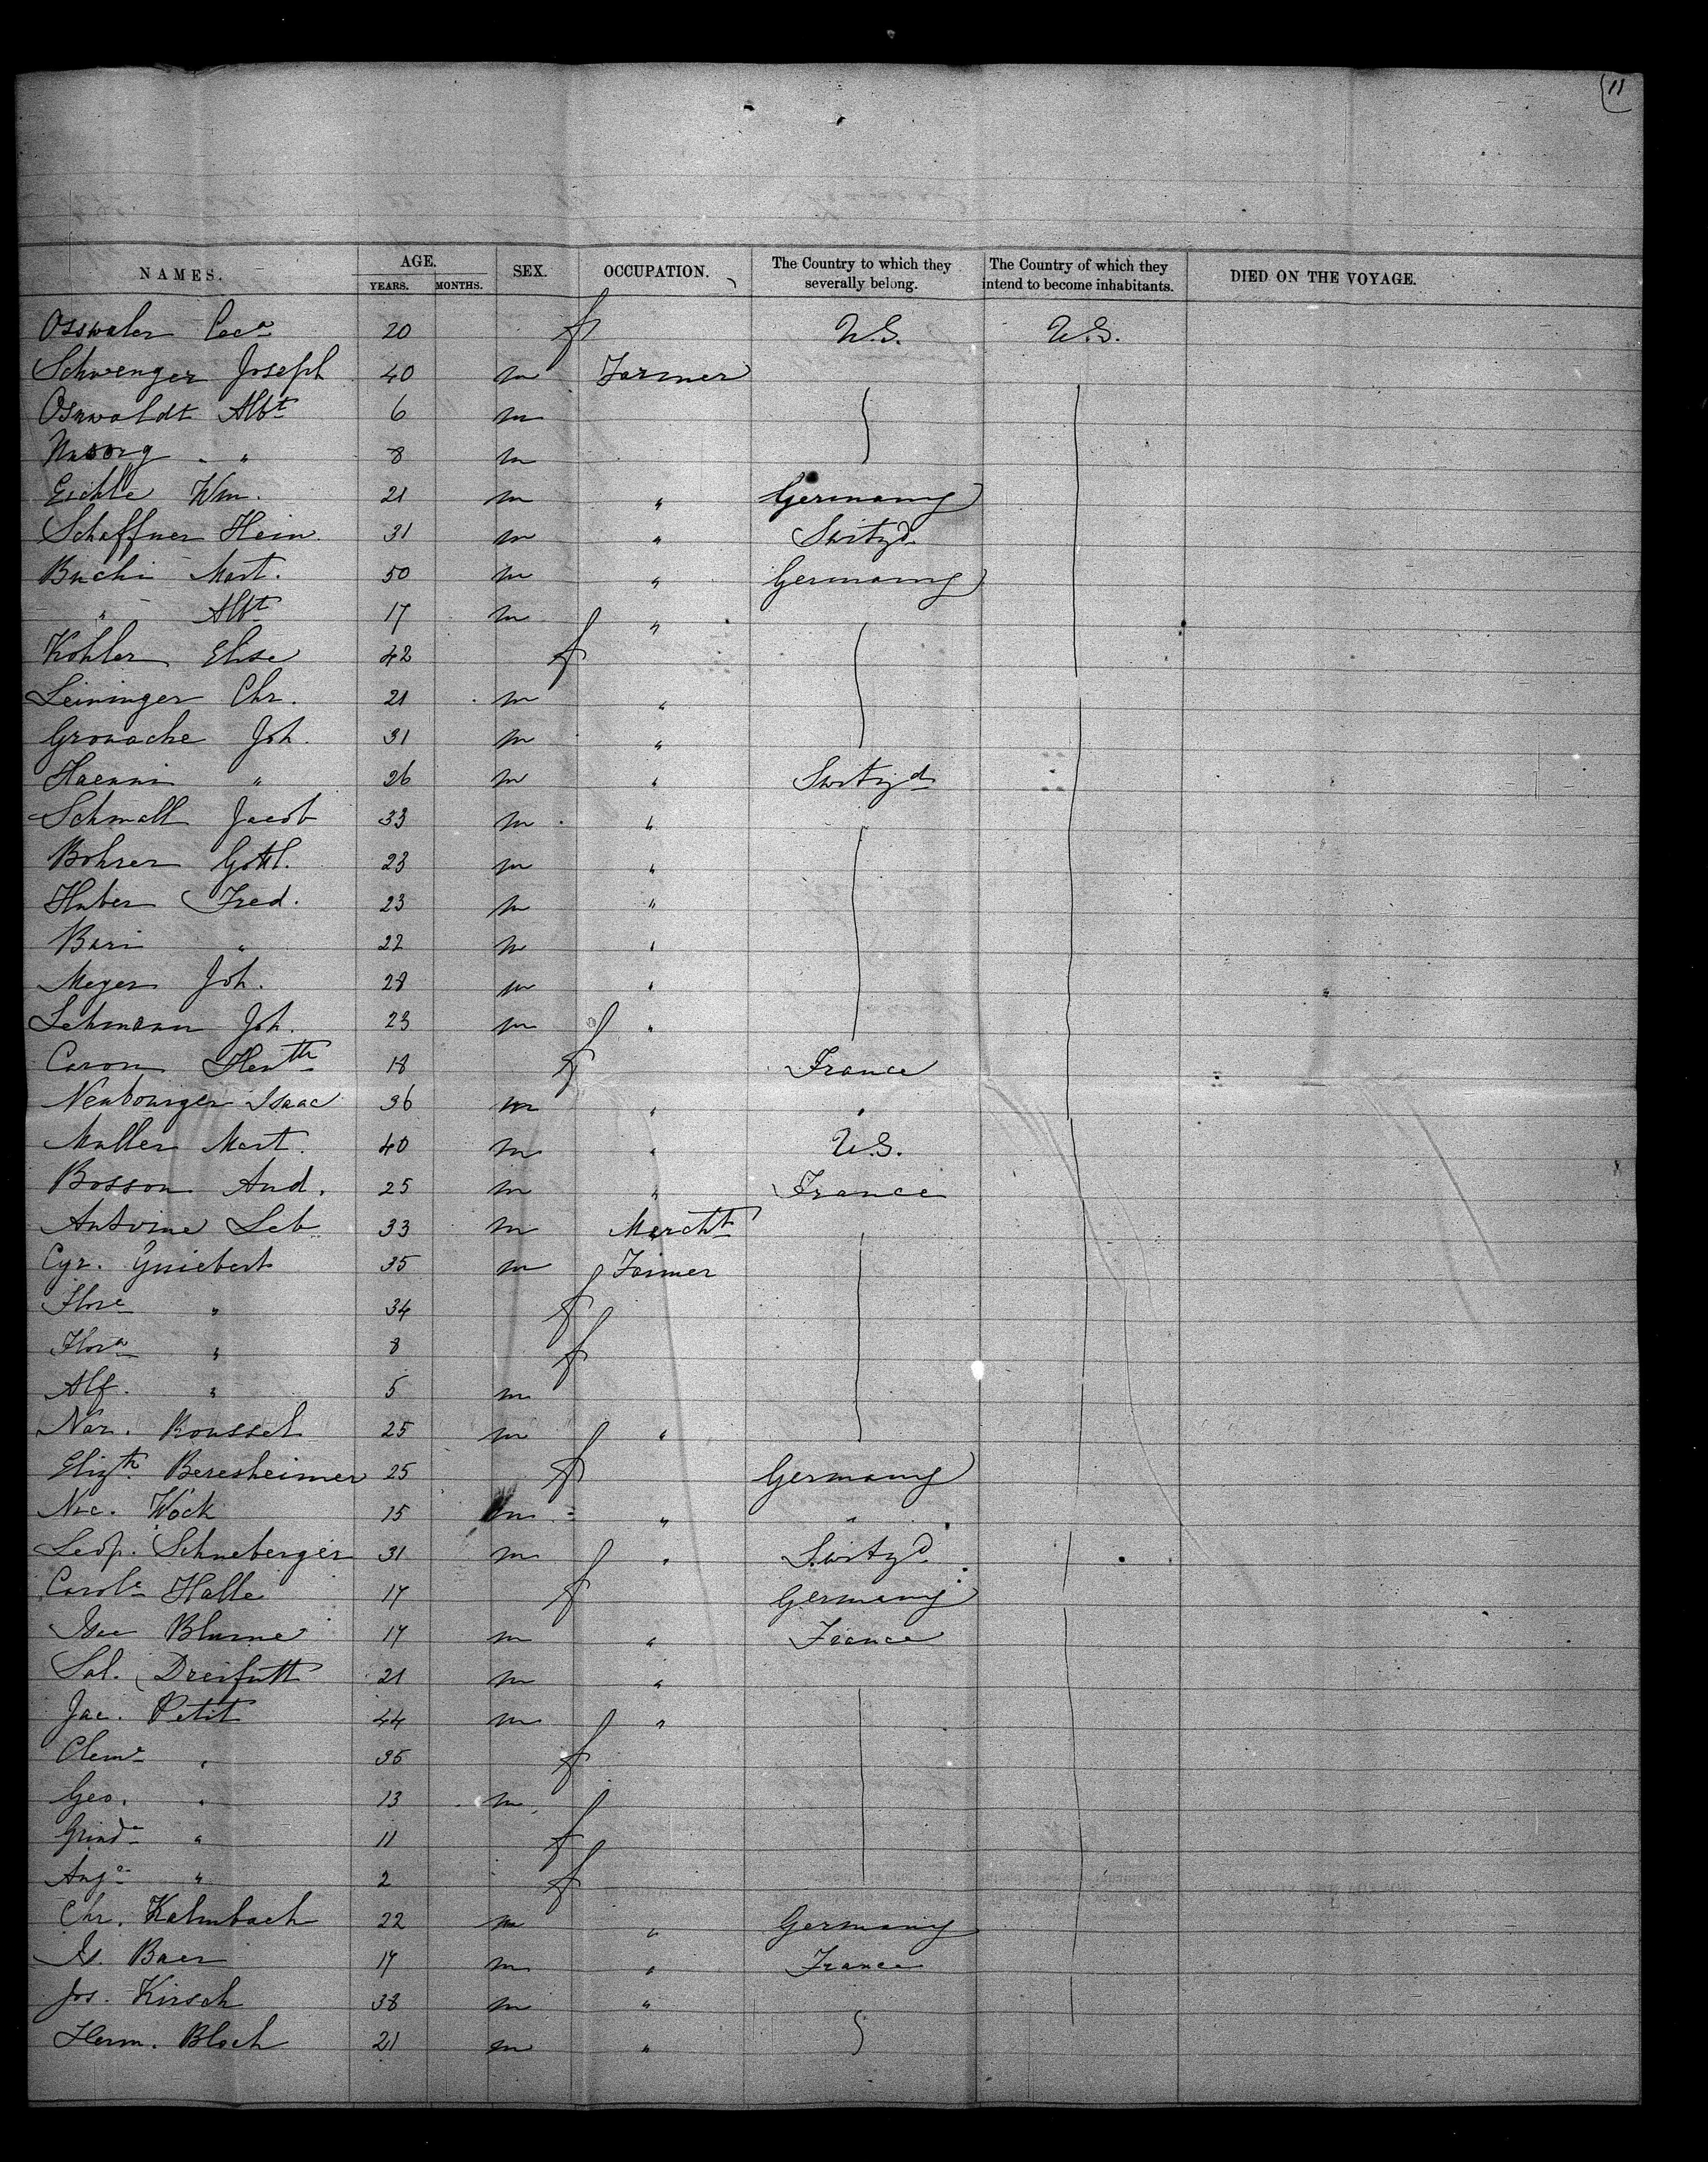 11
NAMES. AGE. YEARS. MONTHS. SEX. OCCUPATION. The Country to which they severally belong. The Country of which they intend to become inhabitants. DIED ON THE VOYAGE.
20 f U.S. U.S.
Schwenger Joseph 40 m Farmer
Osswaldt Albt 6 m
" 8 m
Eichle Wm. 21 m " Germany
Schaffner Hein. 31 m " Switzd.
Buchi Mart. 50 m " Germany
" Albt 17 m "
Kohler Elise 42 f
Leininger Chr. 21 m "
Gronache Joh. 31 m "
Haenni " 26 m " Switzd
Schmall Jacob 33 m "
Bohrer Gottl. 23 m "
Huber Fred. 23 m "
Bari " 22 m "
Meyer Joh. 28 m "
Lehmann Joh. 23 m "
Caron 18 f France
Neubourger Isaac 36 m " "
Muller Mart. 40 m " U.S.
Bosson And. 25 m " France
Antoine Seb 33 m Marcht
Cyr. 35 m Farmer
Flore " 34 f
Flora " 8 f
Alf. " 5 m
Nar. Roussel 25 m "
Elizth. Beresheimer 25 f Germany
Nic. Wock 15 m " "
Leop. Schneberger 31 m " Switzd.
Carole Halle 17 f Germany
Isac Blume 17 m " France
Sal. 21 m "
Jac. Petit 44 m "
Cleme " 35 f
Geo. " 13 m
" 11 f
Ange " 2 f
Chr. Kalmbach 22 m " Germany
Is. Baer 17 m " France
Jos. Kirsch 38 m "
Herm. Bloch 21 m "